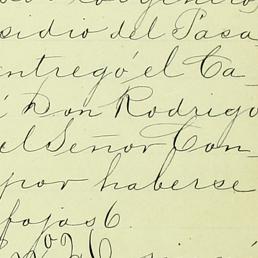 sidio del Pasa
entregó el Ca
Don Rodrigo
el Señor Con
por haberse
fojas 6.
Nº 26